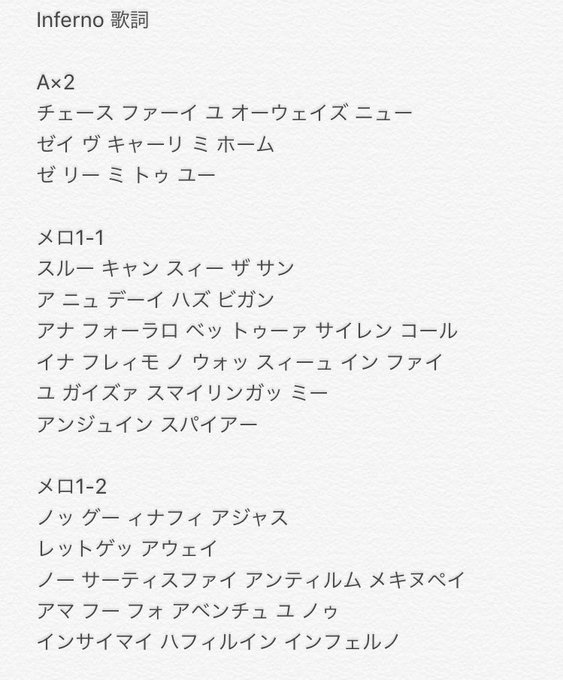 Inferno 歌詞
A×2
チェース ファーイ ユ オーウェイズ ニュー
ゼイ ヴ キャーリ ミ ホーム
ゼ リー ミ トゥ ユー
メロ1-1
スルー キャン スィー ザ サン
ア ニュ デーイ ハズ ビガン
アナ フォーラロ ベット トゥーァ サイレン コール
イナ フレィモ ノ ウォッ スィーュ イン ファイ
ユ ガイズァ スマイリンガッ ミー
アンジュイン スパイアー
メロ1-2
ノッ グー ィナフィ アジャス
レットゲッ アウェイ
ノー サーティスファイ アンティルム メキヌペイ
アマ フー フォ アベンチュ ユ ノゥ
インサイマイ ハフィルイン インフェルノ